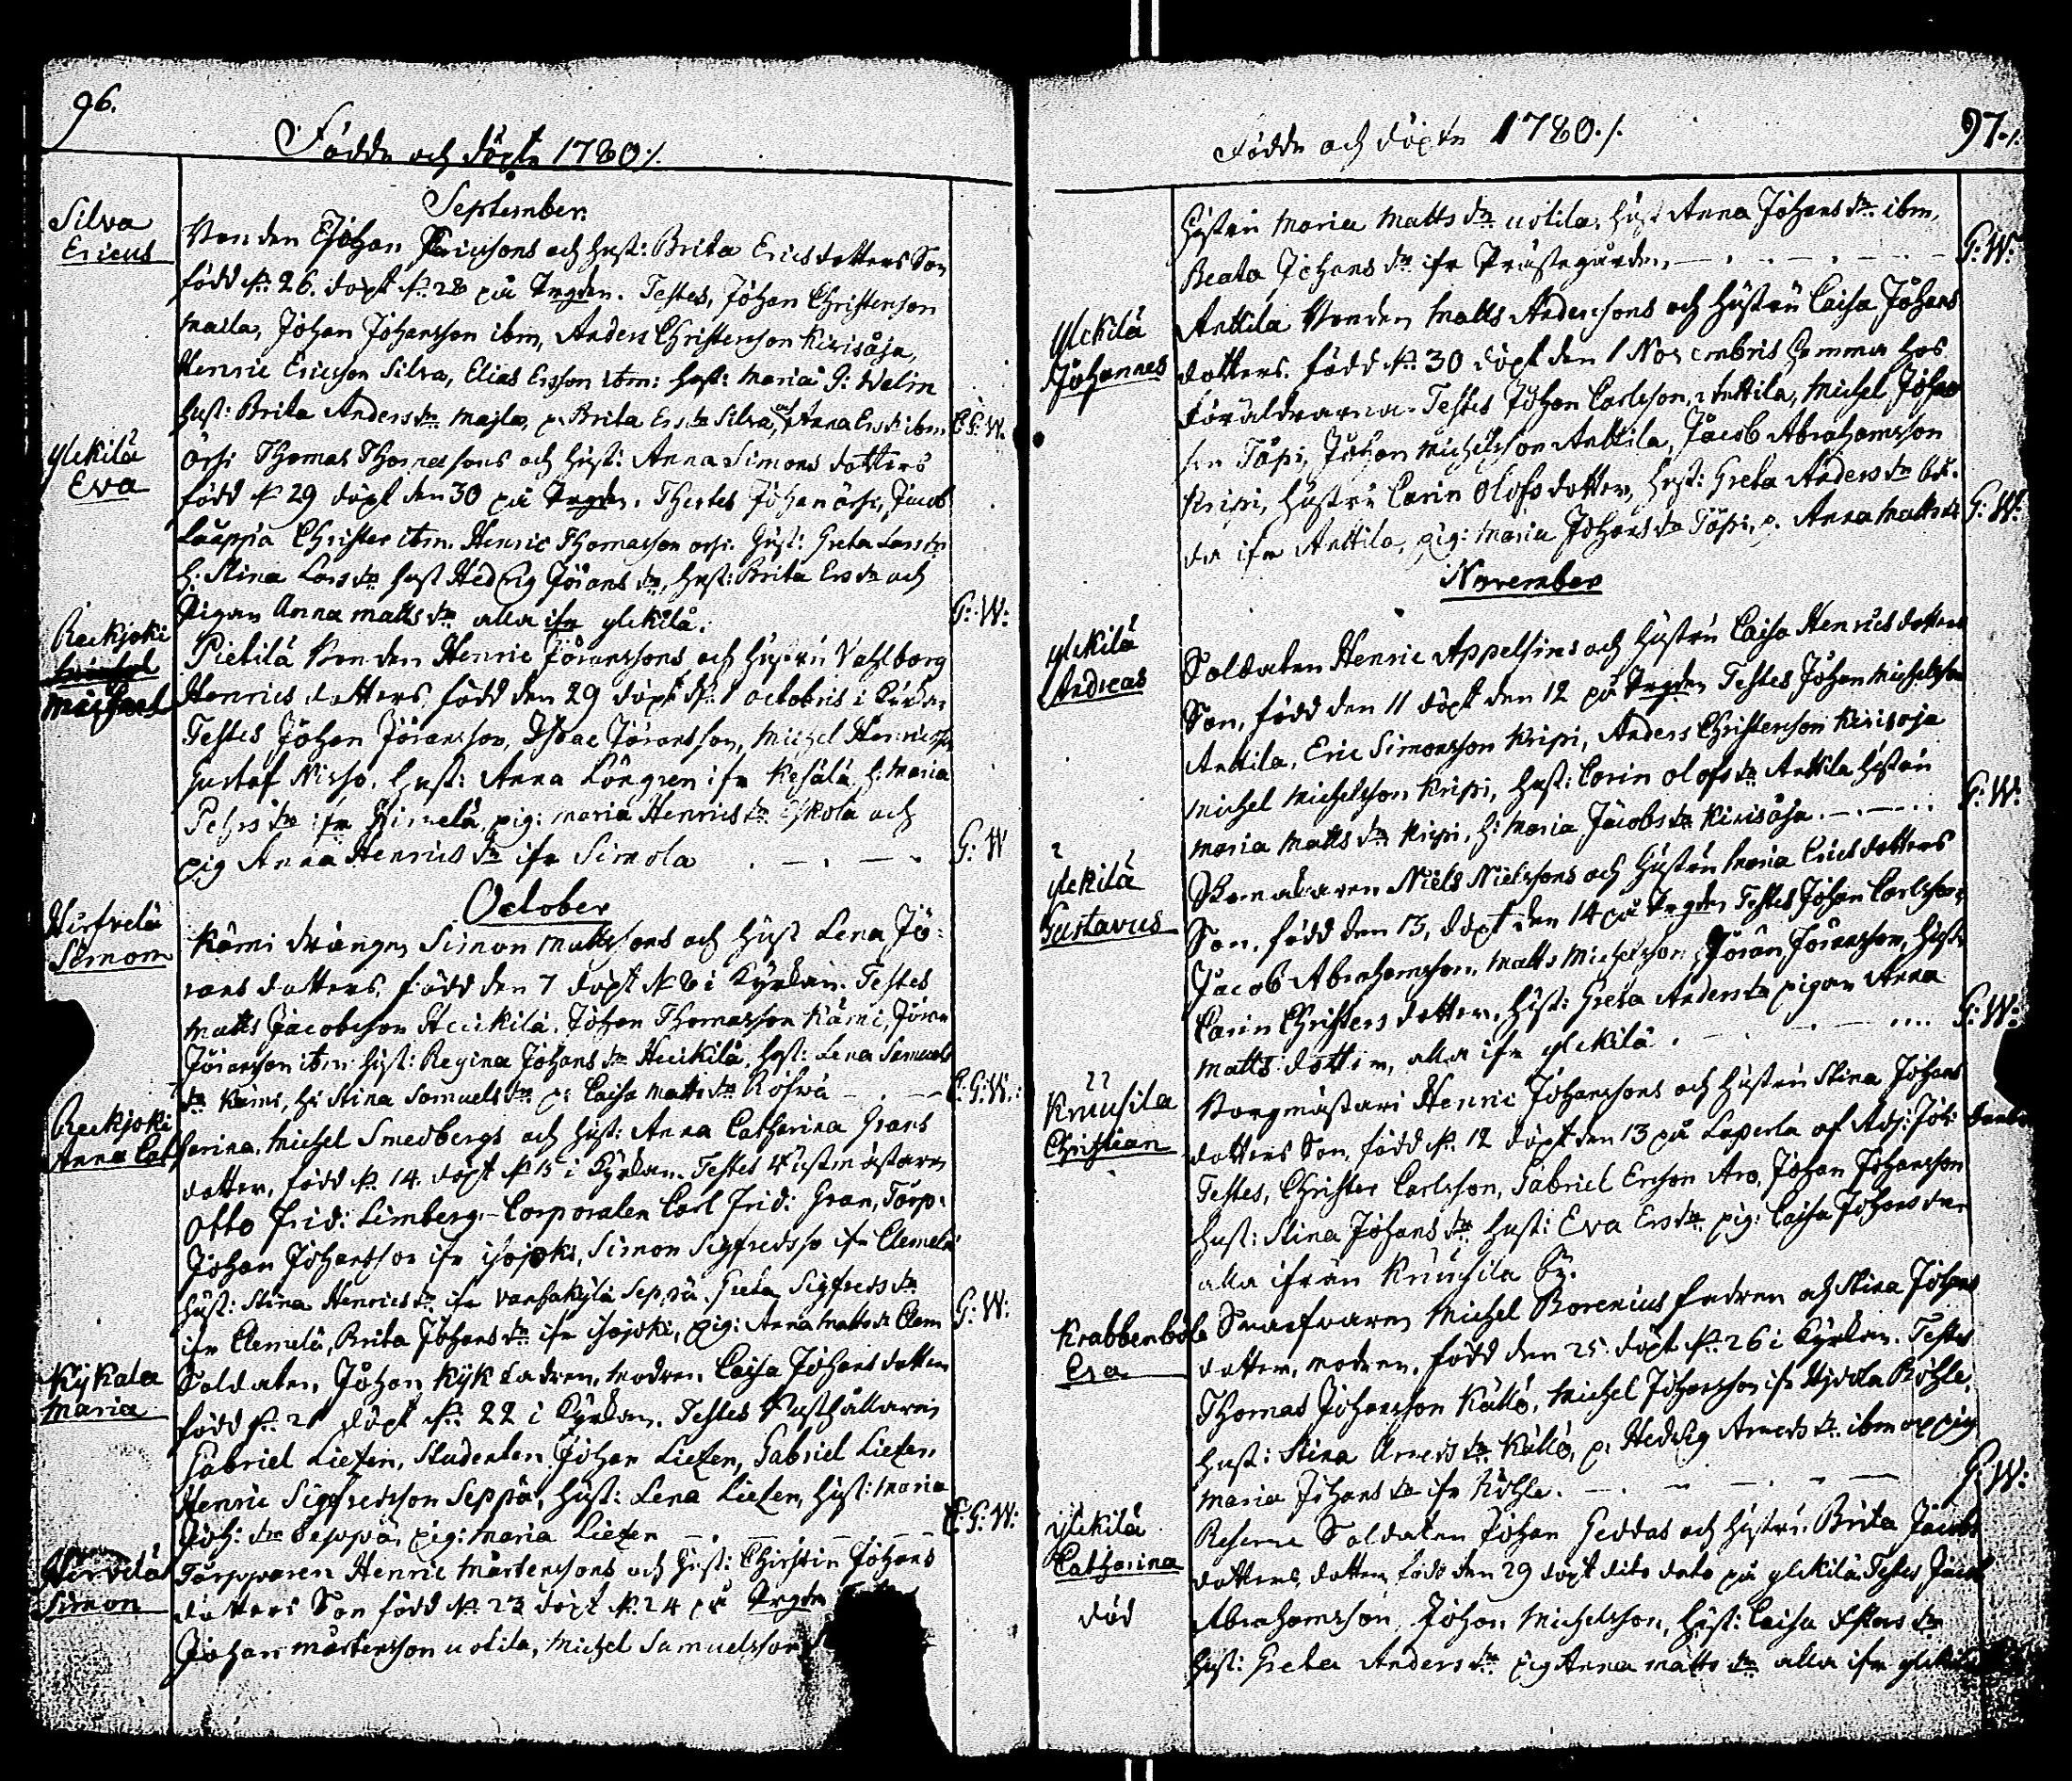 96.
Födde och döpte 1780./.
September.
Silva
Ericus
Bonden Johan Ericssons och hust: Brita Ericsdotters Son
född d. 26. döpt d. 28 på Prgdn. Testes, Johan Christersson
Maila, Johan Johansson ibm, Anders Christersson Kirisåja,
Henric Ericsson Silva, Elias Ersson ibm: hust: Maria G: Welin
hust: Brita Anders dr. Majla, p. Brita Ers dr Silva, och Anna Ers dr ibm
E.G.W.
ylekilä
Eva
Örsi Thomas Thomassons och hust: Anna Simons dotters
född d. 29 döpt den 30 på Prgdn. Thestes Johan örsi, Jacob
Lauppia Christer ibm. Henric Thomasson örsi. Hust: Greta Lars dr.
h: Stina Lars dr hust Hedvig Jörans dr, hust: Brita Ers dr och
Pigan Anna Matts dr alla ifr ylekilä.
G: W:
Reckjoki
Michael
Pietilä Bonden Henric Jöranssons och hustru Vahlborg
Henrics dotters, född den 29 döpt d. 1 octobris i Kyrkan
Testes Johan Jöransson, Isaac Jöransson, Michel Henricsson
Gustaf Nisso, hust: Anna Löngren ifr Kesälä, h: Maria
Pehrs dr ifr Himelä, pig: Maria Henrics dr Eskola och
pig Anna Henrics dr ifr Simola
G: W
October
Hirfvelä
Simon
Kärni drängen Simon Mattssons och hust Lena Jö-
rans dotters, född den 7 döpt d. 8 i Kyrkan. Testes
Matts Jacobsson Heickilä, Johan Thomasson Kärni, Jöran
Jöransson ibm: hust: Regina Johans dr Heickilä, hust: Lena Samuels
dr Kärni, h: Stina Samuels dr p: Caisa Matts dr Röfvä
E:G:W.:
Reckjoki
Anna Catharina.
Michel Smedbergs och hust: Anna Catharina Grans
dotter, född d. 14. döpt d. 15 i Kyrkan. Testes Rustmästaren
Otto Frid: Limberg. Corporalen Carl Frid: Gran, Torp:
Johan Johansson ifr isojoki, Simon Sigfredsso ifr Clemelä
hust: Stina Henrics dr ifr Vanhakylä Seppä. Greta Sigfreds dr
ifr Clemelä, Brita Johans dr ifr isojoki, pig: Anna Matts dr Clem
G: W:
Kykala
Maria
Soldaten Johan Kyk fadren, Modren Caisa Johans dotter
född d. 21 döpt d. 22 i Kyrkan. Testes Rusthållaren
Gabriel Lietzen, Studenten Johan Lietzen, Gabriel Lietzen
Henric Sigfredsson Seppä, hust: Lena Lietzen, hust: Maria
Joh: dr Seppä, pig: Maria Lietzen
E:G:W:
Hirvelä
Simon
Torpparen Henric Mårtenssons och hust: Christin Johans
dotters Son född d. 23 döpt d. 24 på Prgdn
Johan Mårtensson uotila, Michel Samuelsson
Födde och döpte 1780./.
97./.
Hustru Maria Matts dr uotila, hust Anna Johans dr ibm,
Beata Johans dr ifr Prästegården,
G: W:
ylekilä
Johannes
Anttila Bonden Matts Anderssons och hustru Caisa Johans
dotters. född d. 30 döpt den 1 Novembris hemma hos
föräldrarna. Testes Johan Carlsson, Anttila, Michel Johans
son Töpi, Johan Michelsson Anttila, Jacob Abrahamsson
Kripi, hustru Carin Olofs dotter, hust: Greta Anders dr
ifr Anttila, pig: Maria Johans dr Töpi, p. Anna Matts dr
G: W:
November
ylekilä
Andreas
Soldaten Henric Appelsins och hustru Caisa Henrics dotters
Son, född den 11 döpt den 12 på Prgdn Testes Johan Michelsson
Anttila, Eric Simonsson Kripi, Anders Christersson Kirisoja
Michel Michelsson Kripi, hust: Carin Olofs dr Anttila hustru
Maria Matts dr Kripi, h: Maria Jacobs dr Kirisåja.
G: W:
?
ylekilä
Gustavus
Skomakaren Niels Nielssons och hustru Maria Erics dotters
Son, född den 13, döpt den 14 på Prgdn Testes Johan Carlsson,
Jacob Abrahamsson, Matts Michelsson, Jöran Jöransson, hustr
Carin Christers dotter, hust: Greta Anders dr pigan Anna
Matts dotter, alla ifr ylekilä.
G: W:
??
Kruusila
Christian
Borgmästari Henric Johanssons och hustru Stina Johans
dotters Son, född d. 12 döpt den 13 på Laperla af Adj: Joh:
Testes, Christer Carlsson, Gabriel Ersson Aro, Johan Johansson
hust: Stina Johans dr hust: Eva Ers dr. pig: Caisa Johans dr
alla ifrån Kruusila by.
Krabbenböle
Eva
Swarfvaren Michel Borenius fadren och Stina Johans
dotter, modren, född den 25. döpt d. 26 i Kyrkan. Testes
Thomas Johansson Källö, Michel Johansson ifr Böhle,
hust: Stina Anders dr Källö, p. Hedvig Anders dr. ibm och pig
Maria Johans dr ifr Böhle.
G: W:
Ylekilä
Catharina
död
Reserve Soldaten Johan Geddas och hustru Brita Jacobs
dotters, dotter född den 29 döpt dito dato på ylekilä. Testes Jacob
Abrahamsson, Johan Michelsson, hust: Caisa dr
hust: Greta Anders dr pig Anna Matts dr alla ifr ylekilä